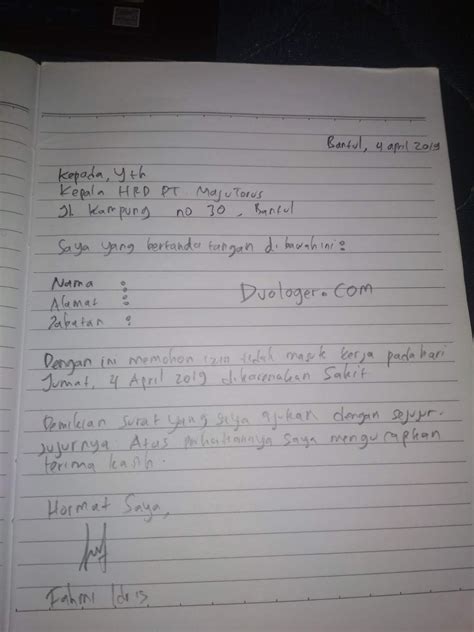 Bantul, 4 april 2019
Kepada, Yth
Kepala HRD PT Maju Torus
Jl. Kampung no 30, Bantul
Saya yang bertanda tangan di bawah ini :
Nama :
Alamat :
Jabatan :
Duologer.com
Dengan ini memohon izin tidak masuk kerja pada hari
Jumat, 4 April 2019 dikarenakan Sakit.
Demikian surat yang saya ajukan dengan sejujur-
jujurnya. Atas saya mengucapkan
terima kasih.
Hormat Saya,
Fahmi Idris